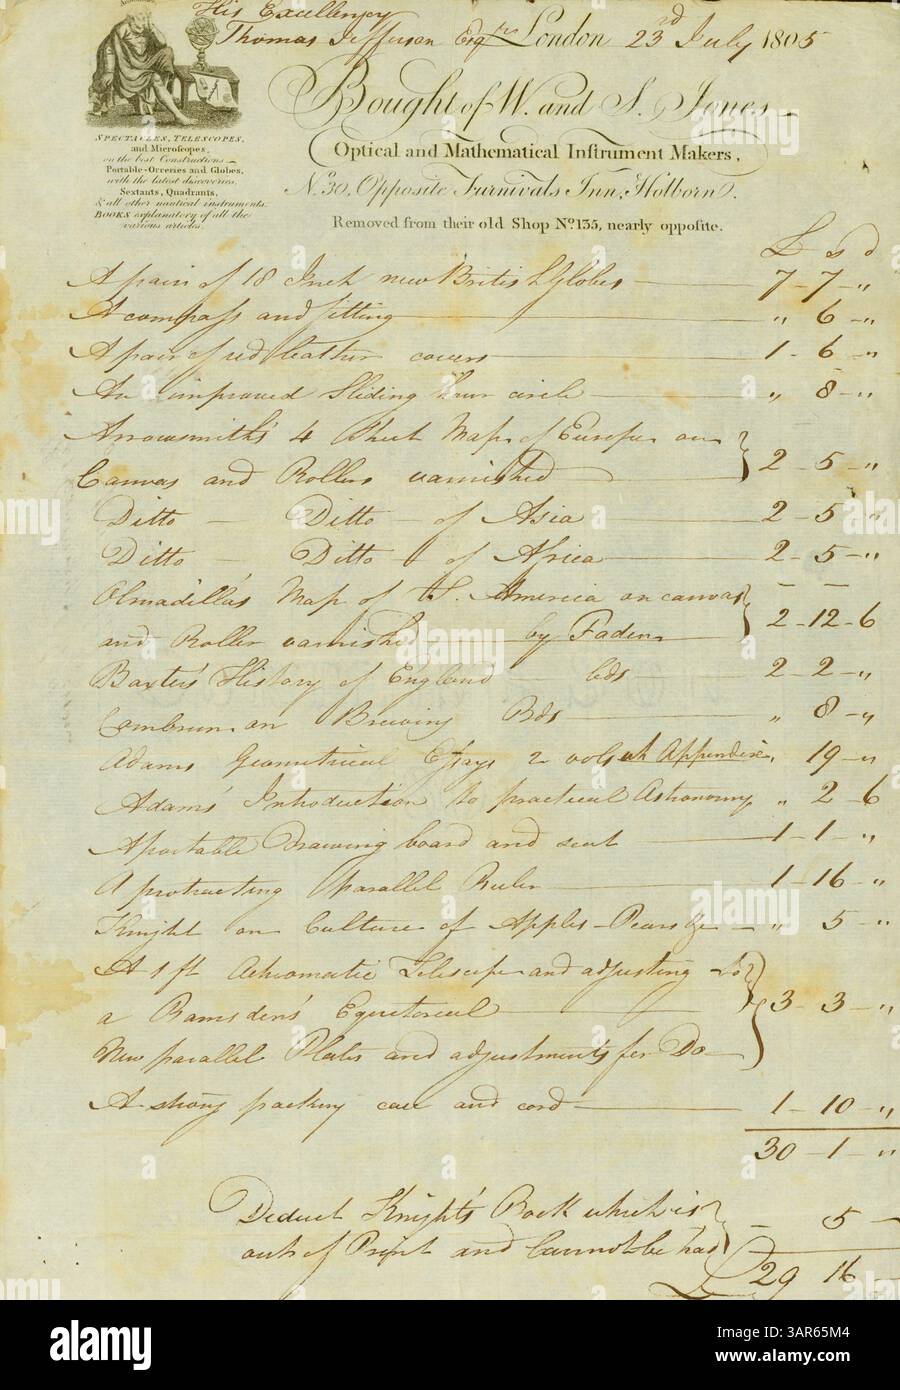 His Excellency
Thomas Jefferson Esqr London 23rd July 1805
Bought of W. and S. Jones
Optical and Mathematical Instrument Makers,
No. 30, Opposite Furnivals Inn, Holborn.
Removed from their old Shop No. 135, nearly opposite.
SPECTACLES, TELESCOPES,
and Microscopes,
on the best Constructions
Portable-Orreries and Globes,
with the latest discoveries,
Sextants, Quadrants,
& all other nautical instruments.
BOOKS explanatory of all the
various articles.
£ s d
A pair of 18 Inch new British Globes 7 - 7 - "
A compass and fitting " 6 - "
A pair of red leather covers 1 - 6 - "
An improved Sliding hour circle " 8 - "
Arrowsmith's 4 Sheet Map of Europe on
Canvas and Rollers varnished 2 - 5 - "
Ditto - Ditto - of Asia 2 - 5 - "
Ditto - Ditto - of Africa 2 - 5 - "
Olmadilla's Map of S. America on canvas
and Roller varnishd by Faden 2 - 12 - 6
Baxter's History of England bds 2 - 2 - "
Combrun on Brewing Bds " 8 - "
Adams Geometrical Essays 2 vols with Appendix, 19 - "
Adams' Introduction to practical Astronomy " 2 - 6
A portable Drawing board and seat 1 - 1 - "
A protracting Parallel Ruler 1 - 16 - "
Knight on Culture of Apples - Pears &c - " 5 - "
A 1 ft Achromatic Telescope and adjusting - to
a Ramsden's Equatoreal 3 - 3 - "
New parallel Plates and adjustments for Do
A strong packing case and cord 1 - 10 - "
30 - 1 - "
Deduct Knight's Book which is
out of Print and Cannot be had - 5 -
£ 29 16 -
alamy
Image ID: 3AR65M4
www.alamy.com